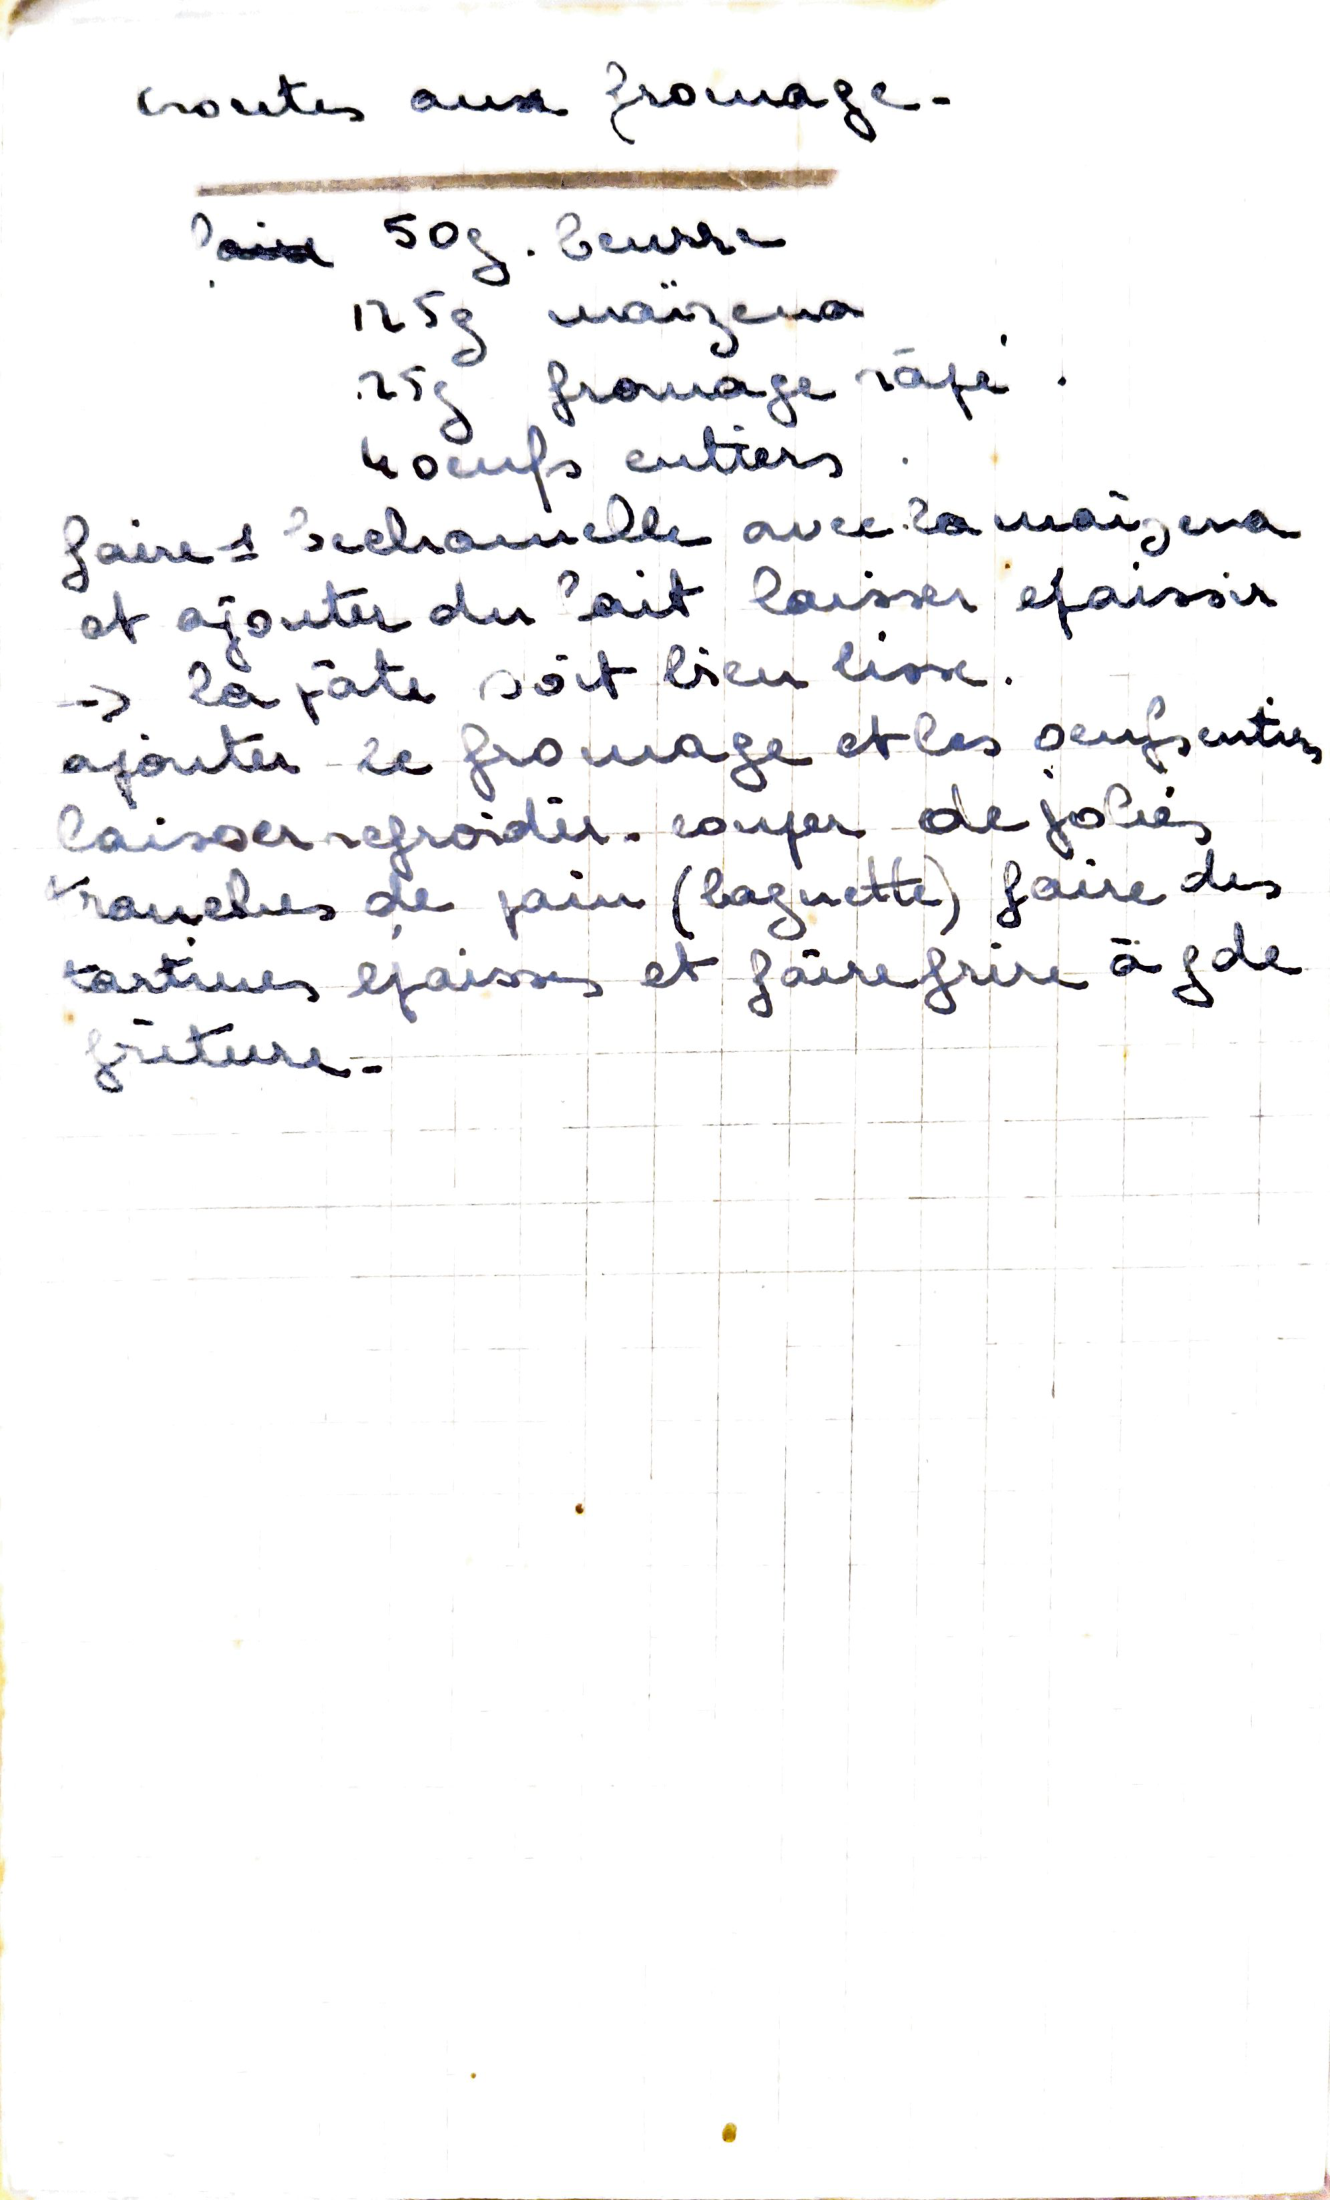 croutes aux fromage-
50g. beurre
125g maïzena
25g fromage râpé.
4 oeufs entiers.
faire 1 bechamelle avec la maïzena
et ajouter du lait laisser epaissir
-> la pâte soit bien lisse.
ajouter le fromage et les oeufs entiers
laisser refroidir. couper de jolies
tranches de pain (baguette) faire des
tartines épaisses et faire frire à gde
friture-